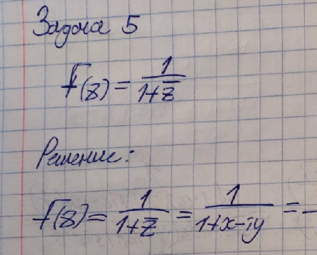 Задача 5
f(z) = 1/(1+z̅)
Решение:
f(z) = 1/(1+z̅) = 1/(1+x-iy) =